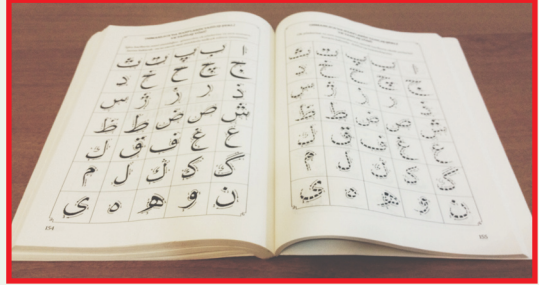 ا ب پ ت ث
ج چ ح خ د
ذ ر ز ژ س
ش ص ض ط ظ
ع غ ف ق ك
گ ڭ ل م
ن و ه ه ى
154
ا ب پ ت ث
ج چ ح خ د
ذ ر ز ژ س
ش ص ض ط ظ
ع غ ف ق ك
ل م
ن و ه ه ى
155